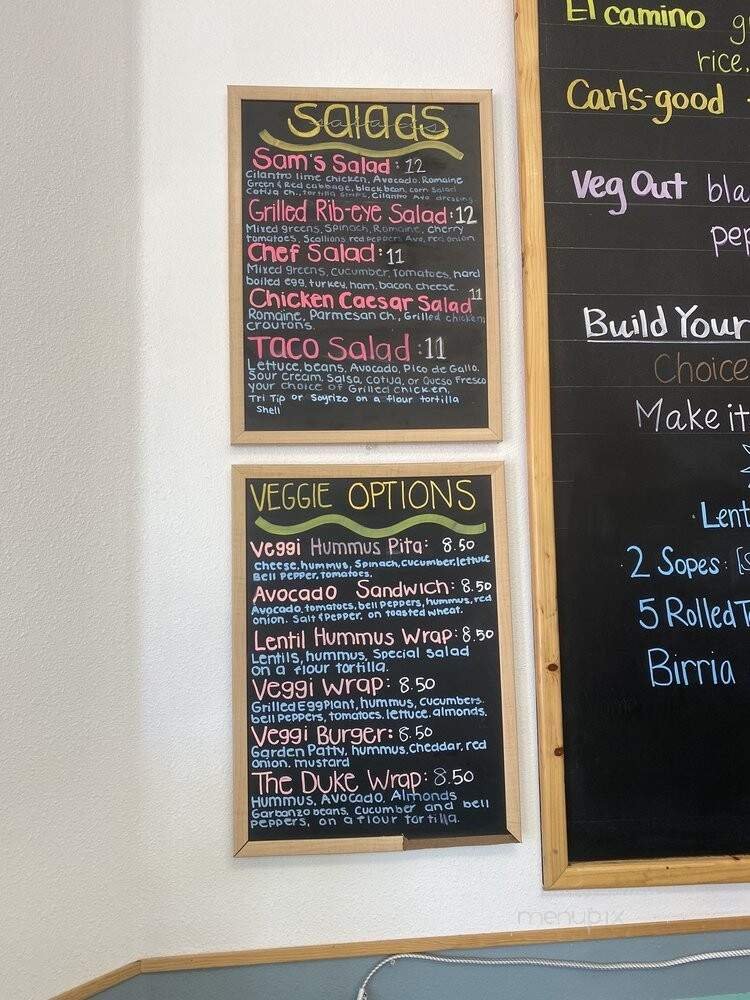 Salads
Sam's Salad: 12
Cilantro lime chicken, Avocado, Romaine
Green & Red cabbage, black bean, corn Salad
Cotija ch., tortilla strips, Cilantro Avo dressing
Grilled Rib-eye Salad: 12
Mixed greens, Spinach, Romaine, cherry
tomatoes, Scallions red peppers Avo, red onion
Chef Salad: 11
Mixed greens, cucumber, tomatoes, hard
boiled egg, turkey, ham, bacon, cheese.
Chicken Caesar Salad 11
Romaine, Parmesan ch., Grilled chicken,
croutons.
Taco Salad: 11
Lettuce, beans, Avocado, Pico de Gallo.
Sour cream, Salsa, cotija, or Queso Fresco
your choice of Grilled chicken,
Tri Tip or Soyrizo on a flour tortilla
Shell
VEGGIE OPTIONS
Veggi Hummus Pita: 8.50
Cheese, hummus, Spinach, cucumber, lettuce
Bell Pepper, Tomatoes.
Avocado Sandwich: 8.50
Avocado, tomatoes, bell peppers, hummus, red
onion. Salt & Pepper, on toasted wheat.
Lentil Hummus Wrap: 8.50
Lentils, hummus, Special salad
on a flour tortilla.
Veggi Wrap: 8.50
Grilled Eggplant, hummus, cucumbers.
bell peppers, tomatoes, lettuce, almonds.
Veggi Burger: 8.50
Garden Patty, hummus, cheddar, red
onion, mustard
The Duke Wrap: 8.50
Hummus, Avocado, Almonds
Garbanzo beans, cucumber and bell
peppers, on a flour tortilla.
El camino
rice.
Carls-good
Veg Out bla
pep
Build Your
Choice
Make it
Lent
2 Sopes
5 Rolled T
Birria
menupix